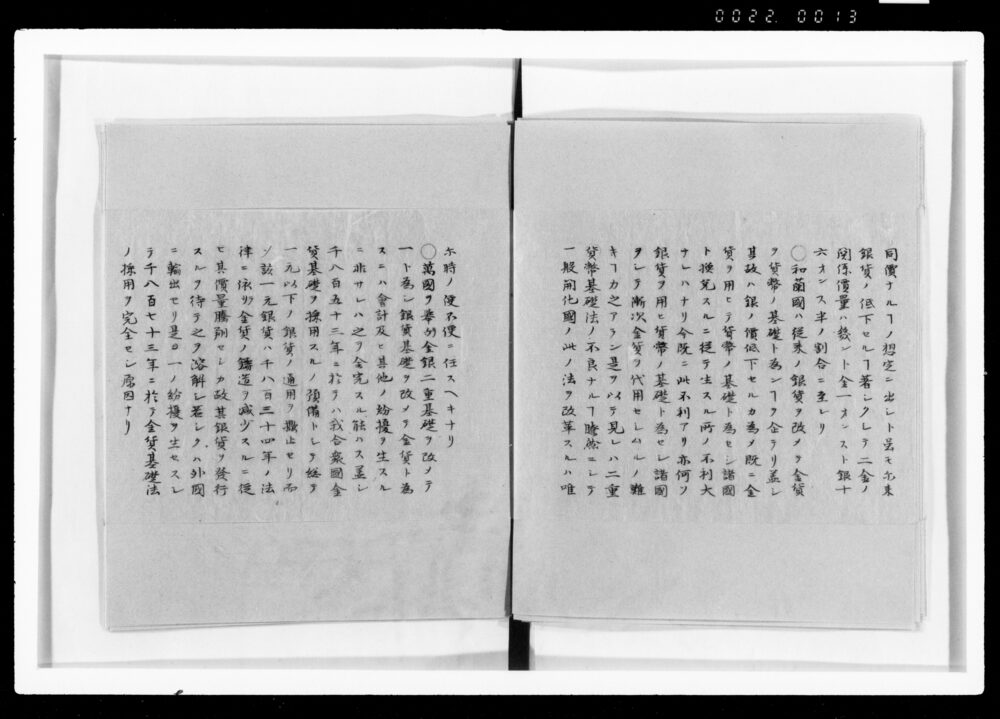 0022.0013
同價ナルヿノ想定ニ出シト雖モ尓来
銀貨ノ低下セルヿ著シクシテ二金ノ
関係價量ハ幾ント金一オンスト銀十
六オンス半ノ割合ニ至レリ
〇和蘭國ハ従来ノ銀貨ヲ改メテ金貨
ヲ貨幣ノ基礎ト為シヿヲ企テリ蓋シ
其故ハ銀ノ價低下セルカ為メ既ニ金
貨ヲ用ヒテ貨幣ノ基礎ト為セシ諸國
ト換兌スルニ従テ生スル所ノ不利大
ナレハナリ今既ニ此不利アリ亦何ソ
銀貨ヲ用ヒ貨幣ノ基礎ト為セシ諸國
ヲシテ漸次金貨ヲ代用セシムルノ難
キヿカ之アラン是ヲ以テ見レハ二重
貨幣基礎法ノ不良ナルヿ瞭然ニシテ
一般開化國ノ此ノ法ヲ改革スルハ唯
尓時ノ便不便ニ任スヘキナリ
〇萬國ヲ舉例金銀二重基礎ヲ改メテ
一ト為シ銀貨基礎ヲ改メテ金貨ト為
スニハ會計及ヒ其他ノ紛擾ヲ生スル
ニ非サレハ之ヲ全完スル能ハス蓋シ
千八百五十三年ニ於テハ我合衆國金
貨基礎ヲ採用スルノ預備トシテ総テ
一元以下ノ銀貨ノ通用ヲ撤止セリ而
ソ該一元銀貨ハ千八百三十四年ノ法
律ニ依リ金貨ノ鑄造ヲ減少スルニ従
ヒ其價量騰翔セシカ故其銀貨ヲ發行
スルヲ待テ之ヲ溶解シ若シクハ外國
ニ輸出セリ是ロ一ノ紛擾ヲ生セスシ
テ千八百七十三年ニ於テ金貨基礎法
ノ採用ヲ完全セシ原因ナリ